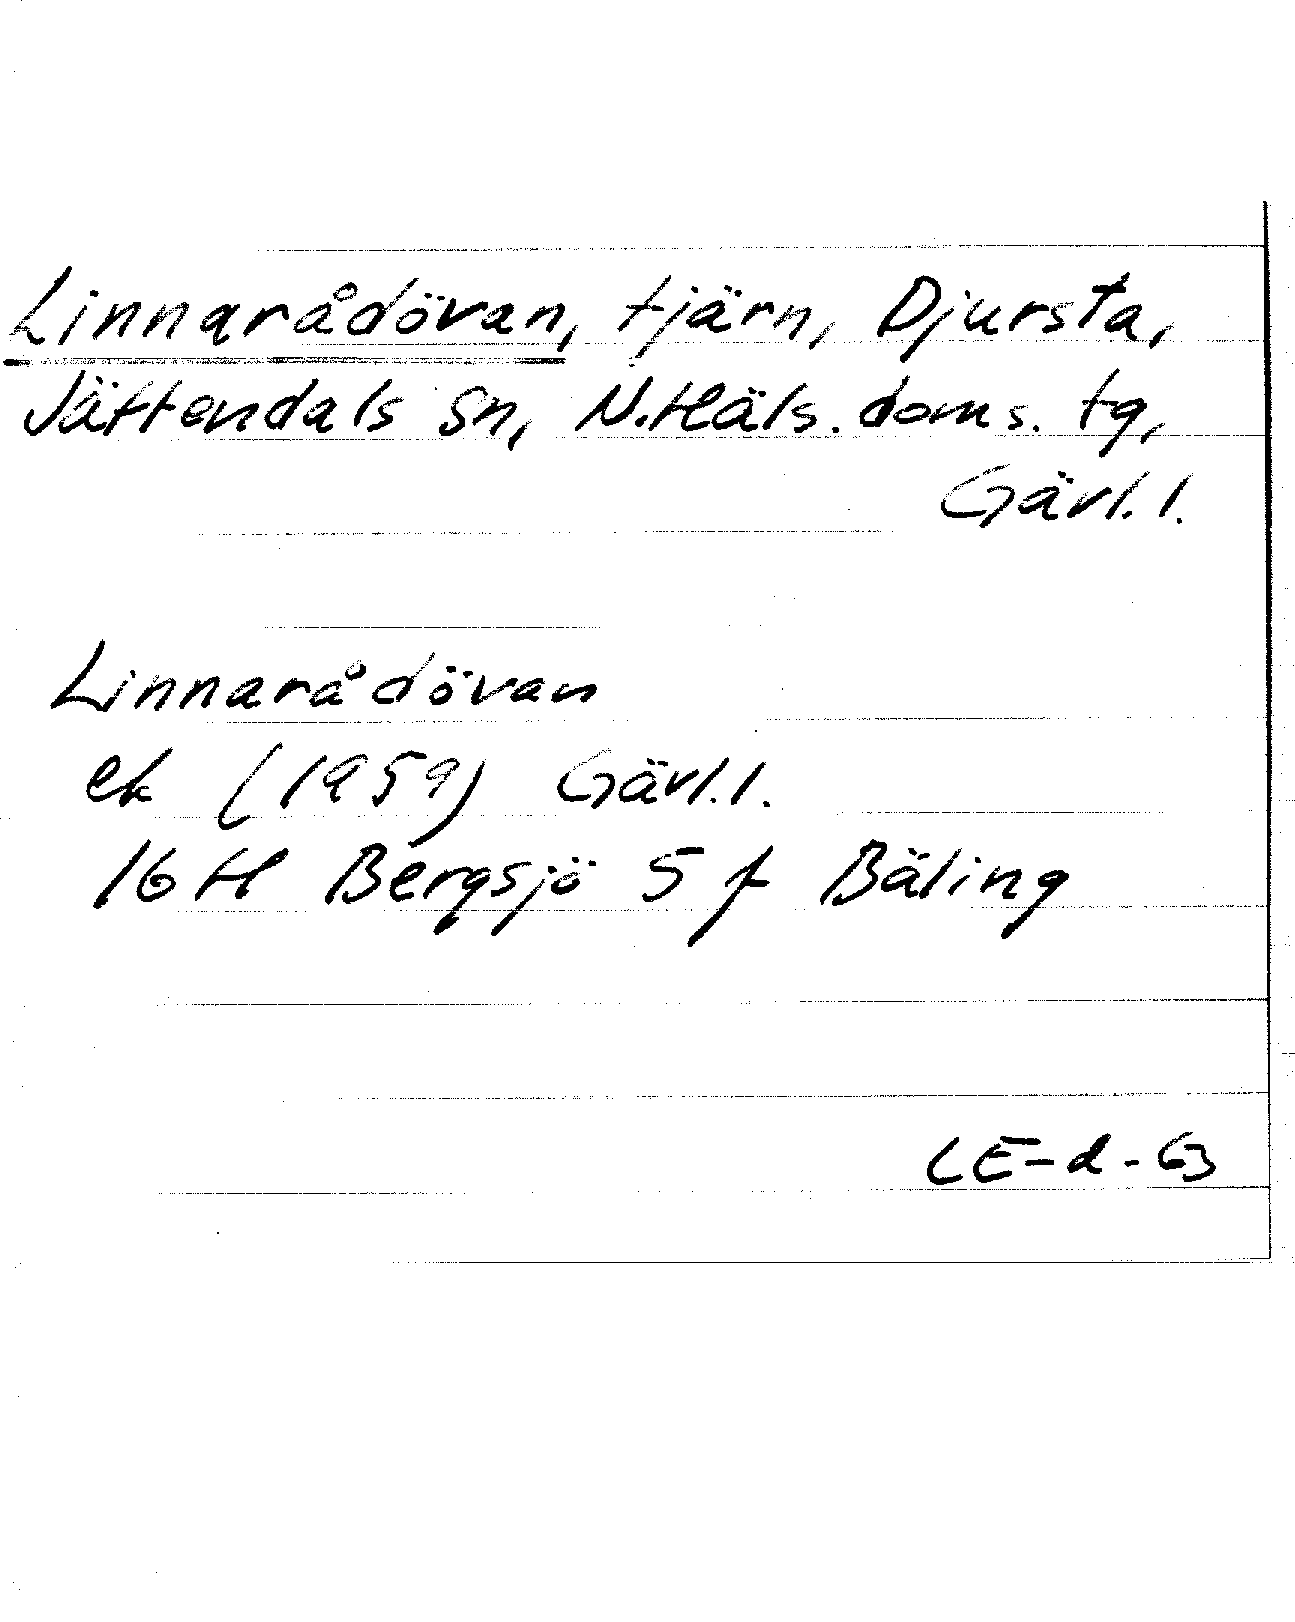 Linnarådövan, tjärn, Djursta,
Jättendals sn, N.Häls. doms. tg,
Gävl.l.
Linnarådövan
ek (1959) Gävl.l.
16H Bergsjö 5 f Bäling
CE-d-63